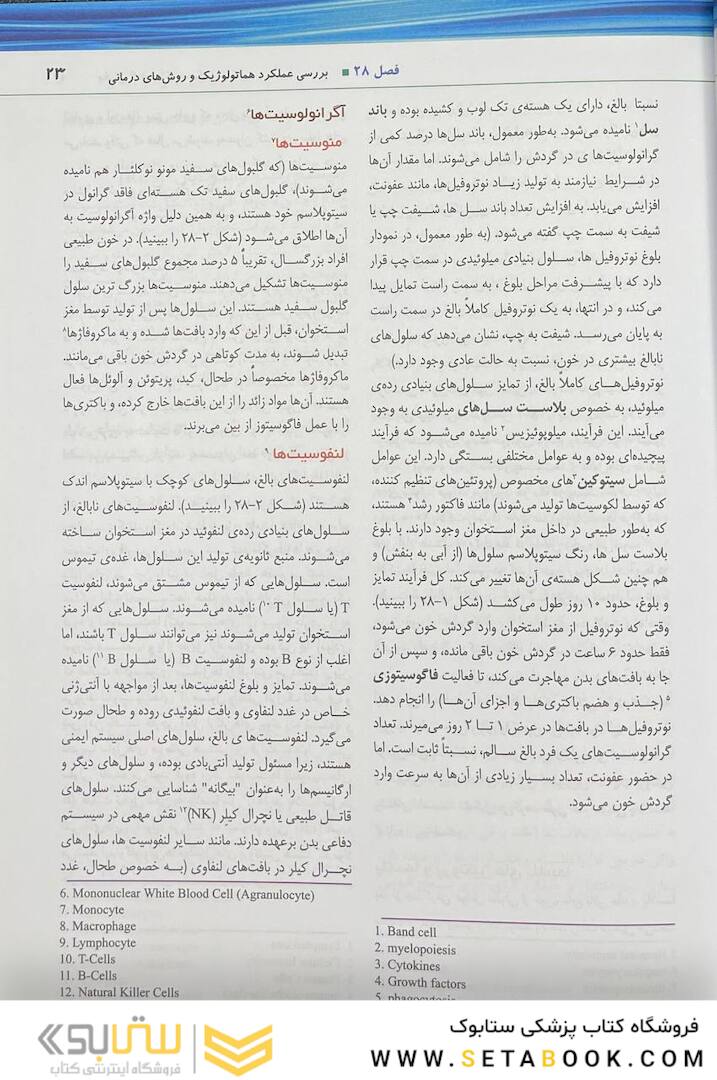 فصل ۲۸ ■ بررسی عملکرد هماتولوژیک و روش‌های درمانی ۲۳
نسبتا بالغ، دارای یک هسته‌ی تک لوب و کشیده بوده و باند
سل۱ نامیده می‌شود. به‌طور معمول، باند سل‌ها درصد کمی از
گرانولوسیت‌ها ی در گردش را شامل می‌شوند. اما مقدار آن‌ها
در شرایط نیازمند به تولید زیاد نوتروفیل‌ها، مانند عفونت،
افزایش می‌یابد. به افزایش تعداد باند سل ها، شیفت چپ یا
شیفت به سمت چپ گفته می‌شود. (به طور معمول، در نمودار
بلوغ نوتروفیل ها، سلول بنیادی میلوئیدی در سمت چپ قرار
دارد که با پیشرفت مراحل بلوغ ، به سمت راست تمایل پیدا
می‌کند، و در انتها، به یک نوتروفیل کاملاً بالغ در سمت راست
به پایان می‌رسد. شیفت به چپ، نشان می‌دهد که سلول‌های
نابالغ بیشتری در خون، نسبت به حالت عادی وجود دارد.)
نوتروفیل‌های کاملاً بالغ، از تمایز سلول‌های بنیادی رده‌ی
میلوئید، به خصوص بلاست سل‌های میلوئیدی به وجود
می‌آیند. این فرآیند، میلوپوئیزیس۲ نامیده می‌شود که فرآیند
پیچیده‌ای بوده و به عوامل مختلفی بستگی دارد. این عوامل
شامل سیتوکین۳های مخصوص (پروتئین‌های تنظیم کننده،
که توسط لکوسیت‌ها تولید می‌شوند) مانند فاکتور رشد۴ هستند،
که به‌طور طبیعی در داخل مغز استخوان وجود دارند. با بلوغ
بلاست سل ها، رنگ سیتوپلاسم سلول‌ها (از آبی به بنفش) و
هم چنین شکل هسته‌ی آن‌ها تغییر می‌کند. کل فرآیند تمایز
و بلوغ، حدود ۱۰ روز طول می‌کشد (شکل ۱-۲۸ را ببینید).
وقتی که نوتروفیل از مغز استخوان وارد گردش خون می‌شود،
فقط حدود ۶ ساعت در گردش خون باقی مانده، و سپس از آن
جا به بافت‌های بدن مهاجرت می‌کند، تا فعالیت فاگوسیتوزی
۵ (جذب و هضم باکتری‌ها و اجزای آن‌ها) را انجام دهد.
نوتروفیل‌ها در بافت‌ها در عرض ۱ تا ۲ روز می‌میرند. تعداد
گرانولوسیت‌های یک فرد بالغ سالم، نسبتاً ثابت است. اما
در حضور عفونت، تعداد بسیار زیادی از آن‌ها به سرعت وارد
گردش خون می‌شود.
1. Band cell
2. myelopoiesis
3. Cytokines
4. Growth factors
5. phagocytosis
آگرانولوسیت‌ها۶
منوسیت‌ها۷
منوسیت‌ها (که گلبول‌های سفید مونو نوکلئار هم نامیده
می‌شوند)، گلبول‌های سفید تک هسته‌ای فاقد گرانول در
سیتوپلاسم خود هستند، و به همین دلیل واژه آگرانولوسیت به
آن‌ها اطلاق می‌شود (شکل ۲-۲۸ را ببینید). در خون طبیعی
افراد بزرگسال، تقریباً ۵ درصد مجموع گلبول‌های سفید را
منوسیت‌ها تشکیل می‌دهند. منوسیت‌ها بزرگ ترین سلول
گلبول سفید هستند. این سلول‌ها پس از تولید توسط مغز
استخوان، قبل از این که وارد بافت‌ها شده و به ماکروفاژها۸
تبدیل شوند، به مدت کوتاهی در گردش خون باقی می‌مانند.
ماکروفاژها مخصوصاً در طحال، کبد، پریتوئن و آلوئل‌ها فعال
هستند. آن‌ها مواد زائد را از این بافت‌ها خارج کرده، و باکتری‌ها
را با عمل فاگوسیتوز از بین می‌برند.
لنفوسیت‌ها ۹
لنفوسیت‌های بالغ، سلول‌های کوچک با سیتوپلاسم اندک
هستند (شکل ۲-۲۸ را ببینید). لنفوسیت‌های نابالغ، از
سلول‌های بنیادی رده‌ی لنفوئید در مغز استخوان ساخته
می‌شوند. منبع ثانویه‌ی تولید این سلول‌ها، غده‌ی تیموس
است. سلول‌هایی که از تیموس مشتق می‌شوند، لنفوسیت
T (یا سلول T ۱۰) نامیده می‌شوند. سلول‌هایی که از مغز
استخوان تولید می‌شوند نیز می‌توانند سلول T باشند، اما
اغلب از نوع B بوده و لنفوسیت B (یا سلول B ۱۱) نامیده
می‌شوند. تمایز و بلوغ لنفوسیت‌ها، بعد از مواجهه با آنتی‌ژنی
خاص در غدد لنفاوی و بافت لنفوئیدی روده و طحال صورت
می‌گیرد. لنفوسیت‌ها ی بالغ، سلول‌های اصلی سیستم ایمنی
هستند، زیرا مسئول تولید آنتی‌بادی بوده، و سلول‌های دیگر و
ارگانیسم‌ها را به‌عنوان "بیگانه" شناسایی می‌کنند. سلول‌های
قاتل طبیعی یا نچرال کیلر (NK)۱۲ نقش مهمی در سیستم
دفاعی بدن برعهده دارند. مانند سایر لنفوسیت ها، سلول‌های
نچرال کیلر در بافت‌های لنفاوی (به خصوص طحال، غدد
6. Mononuclear White Blood Cell (Agranulocyte)
7. Monocyte
8. Macrophage
9. Lymphocyte
10. T-Cells
11. B-Cells
12. Natural Killer Cells
فروشگاه کتاب پزشکی ستابوک
WWW.SETABOOK.COM
ستابوک
فروشگاه اینترنتی کتاب